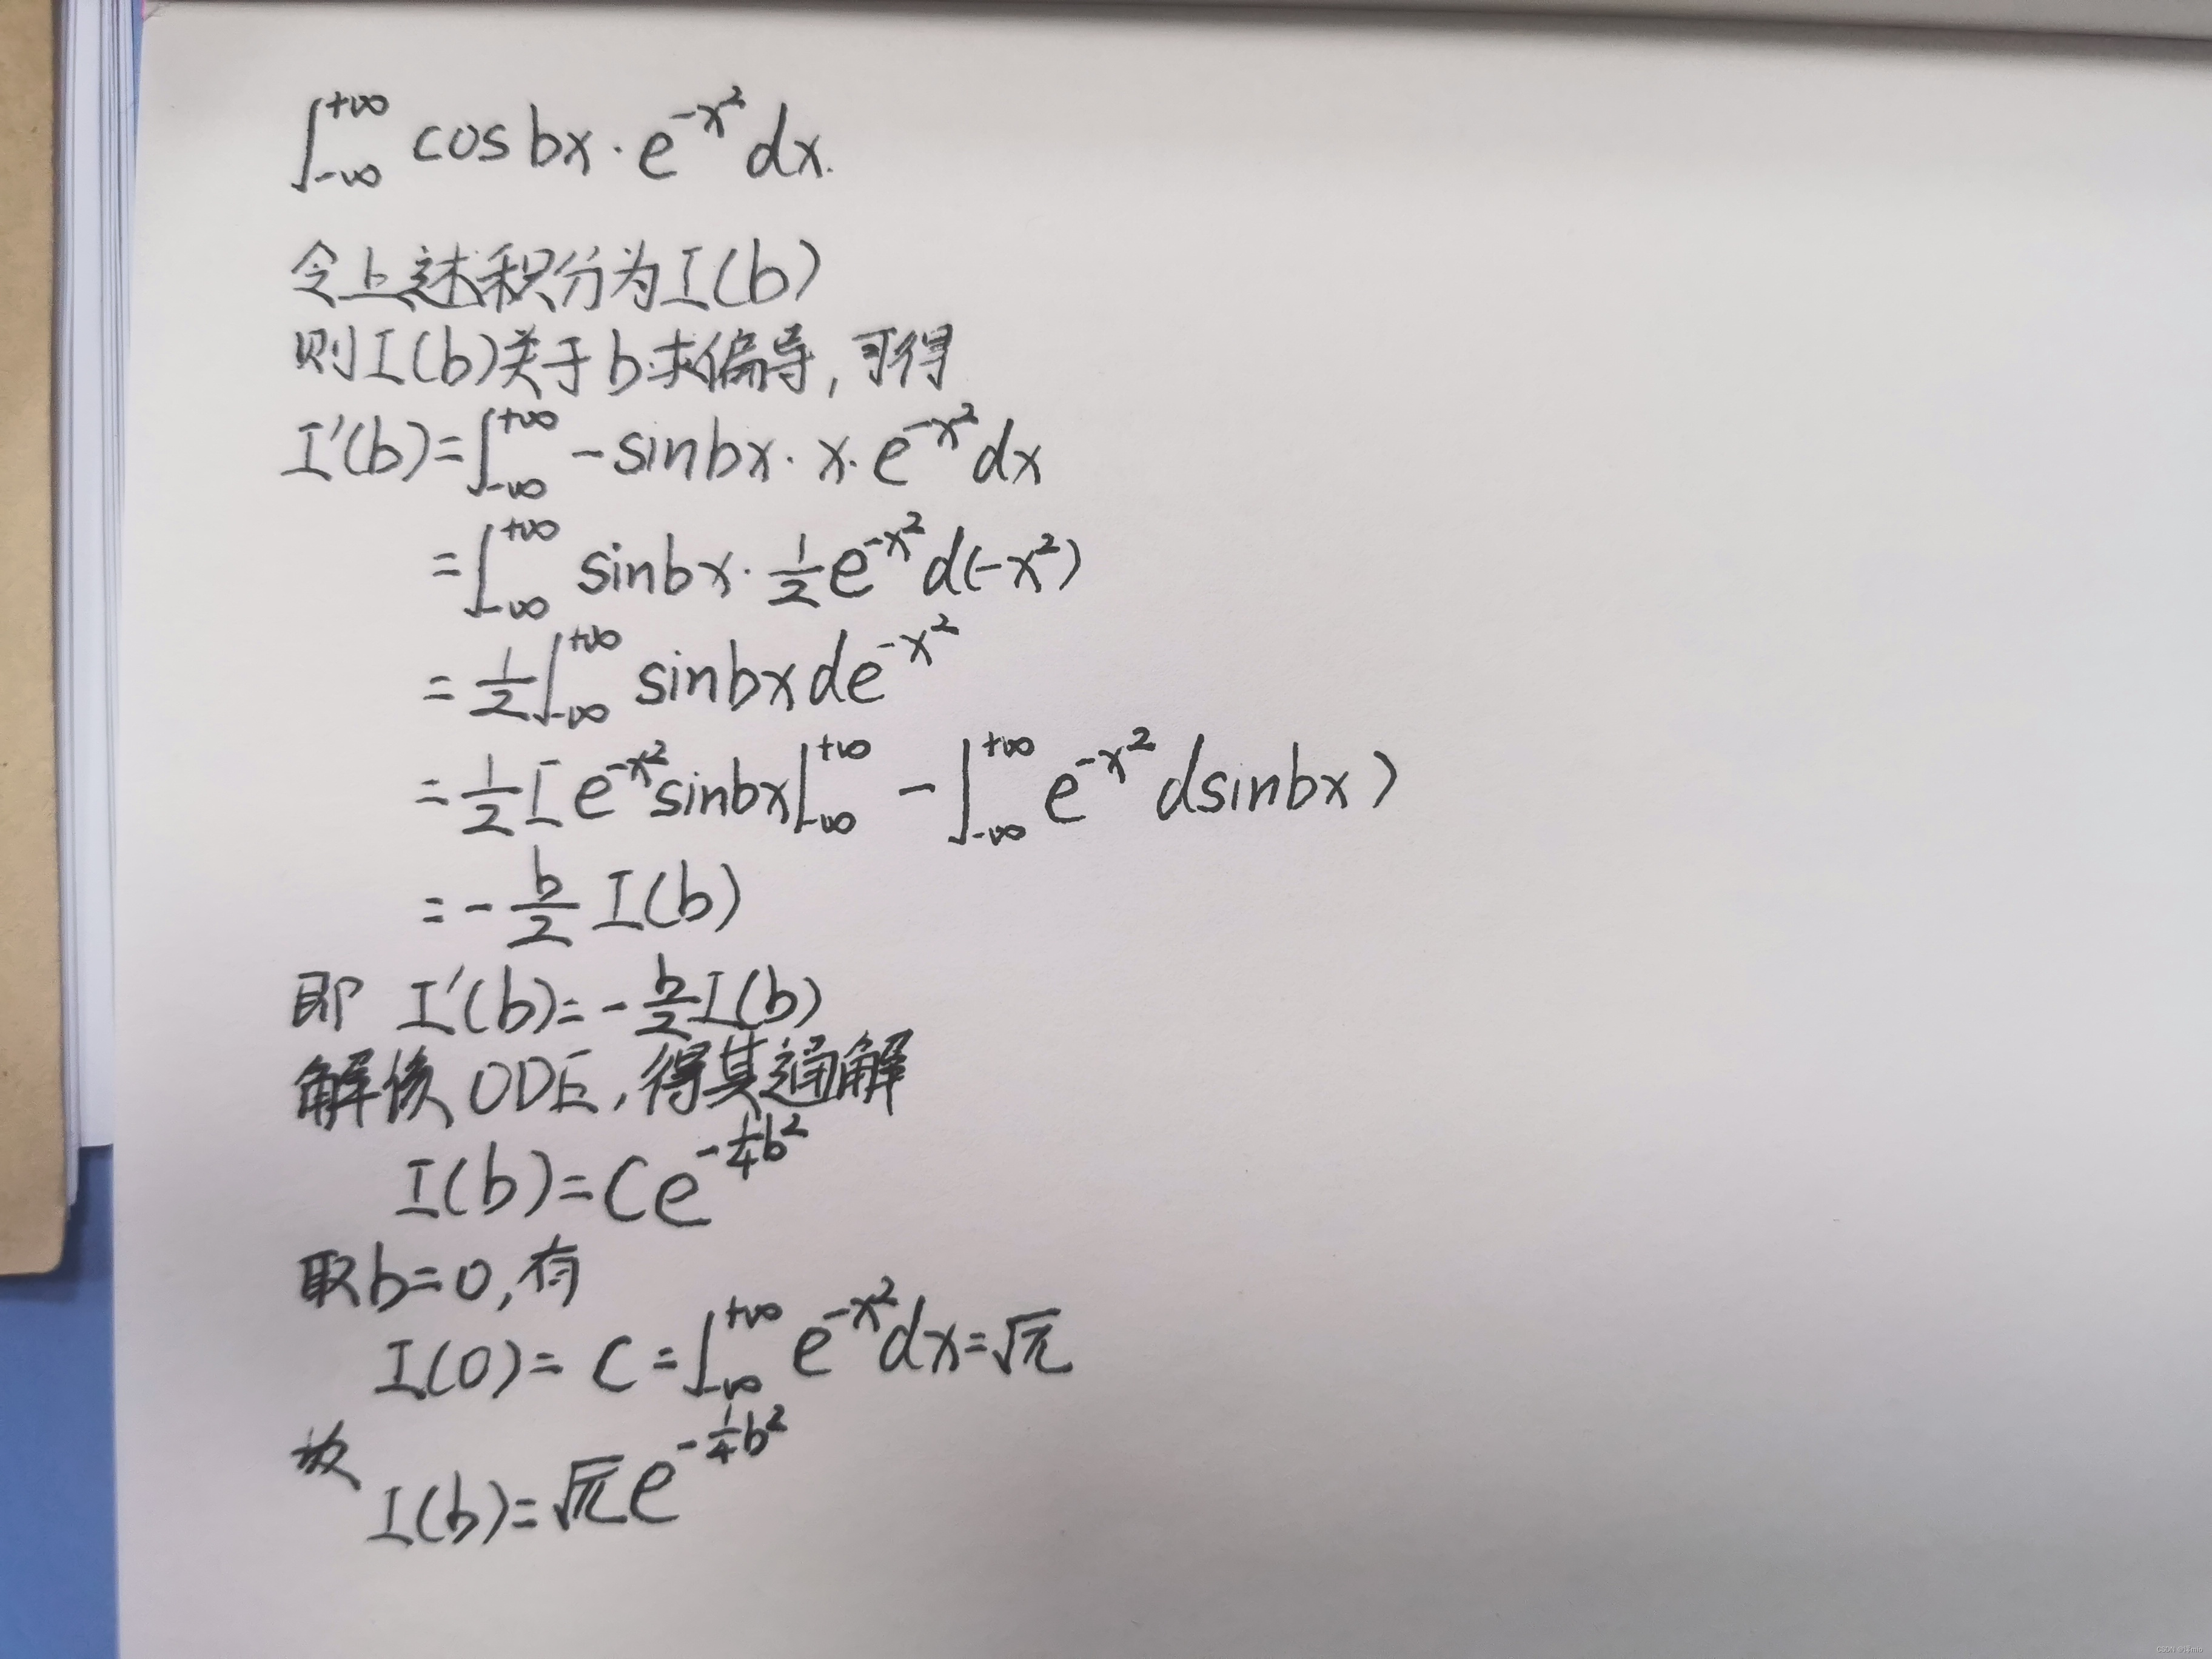 ∫_{-∞}^{+∞} cos bx · e^{-x²} dx.
令上述积分为I(b)
则I(b)关于b求偏导,可得
I'(b)=∫_{-∞}^{+∞} -sinbx · x · e^{-x²} dx
=∫_{-∞}^{+∞} sinbx · 1/2 e^{-x²} d(-x²)
= 1/2 ∫_{-∞}^{+∞} sinbx de^{-x²}
= 1/2 [ e^{-x²} sinbx |_{-∞}^{+∞} - ∫_{-∞}^{+∞} e^{-x²} dsinbx )
= - b/2 I(b)
即 I'(b)= - b/2 I(b)
解俟 ODE,得其通解
I(b)= Ce^{-1/4 b²}
取b=0,有
I(0)= C = ∫_{-∞}^{+∞} e^{-x²} dx = √π
故
I(b)= √π e^{-1/4 b²}